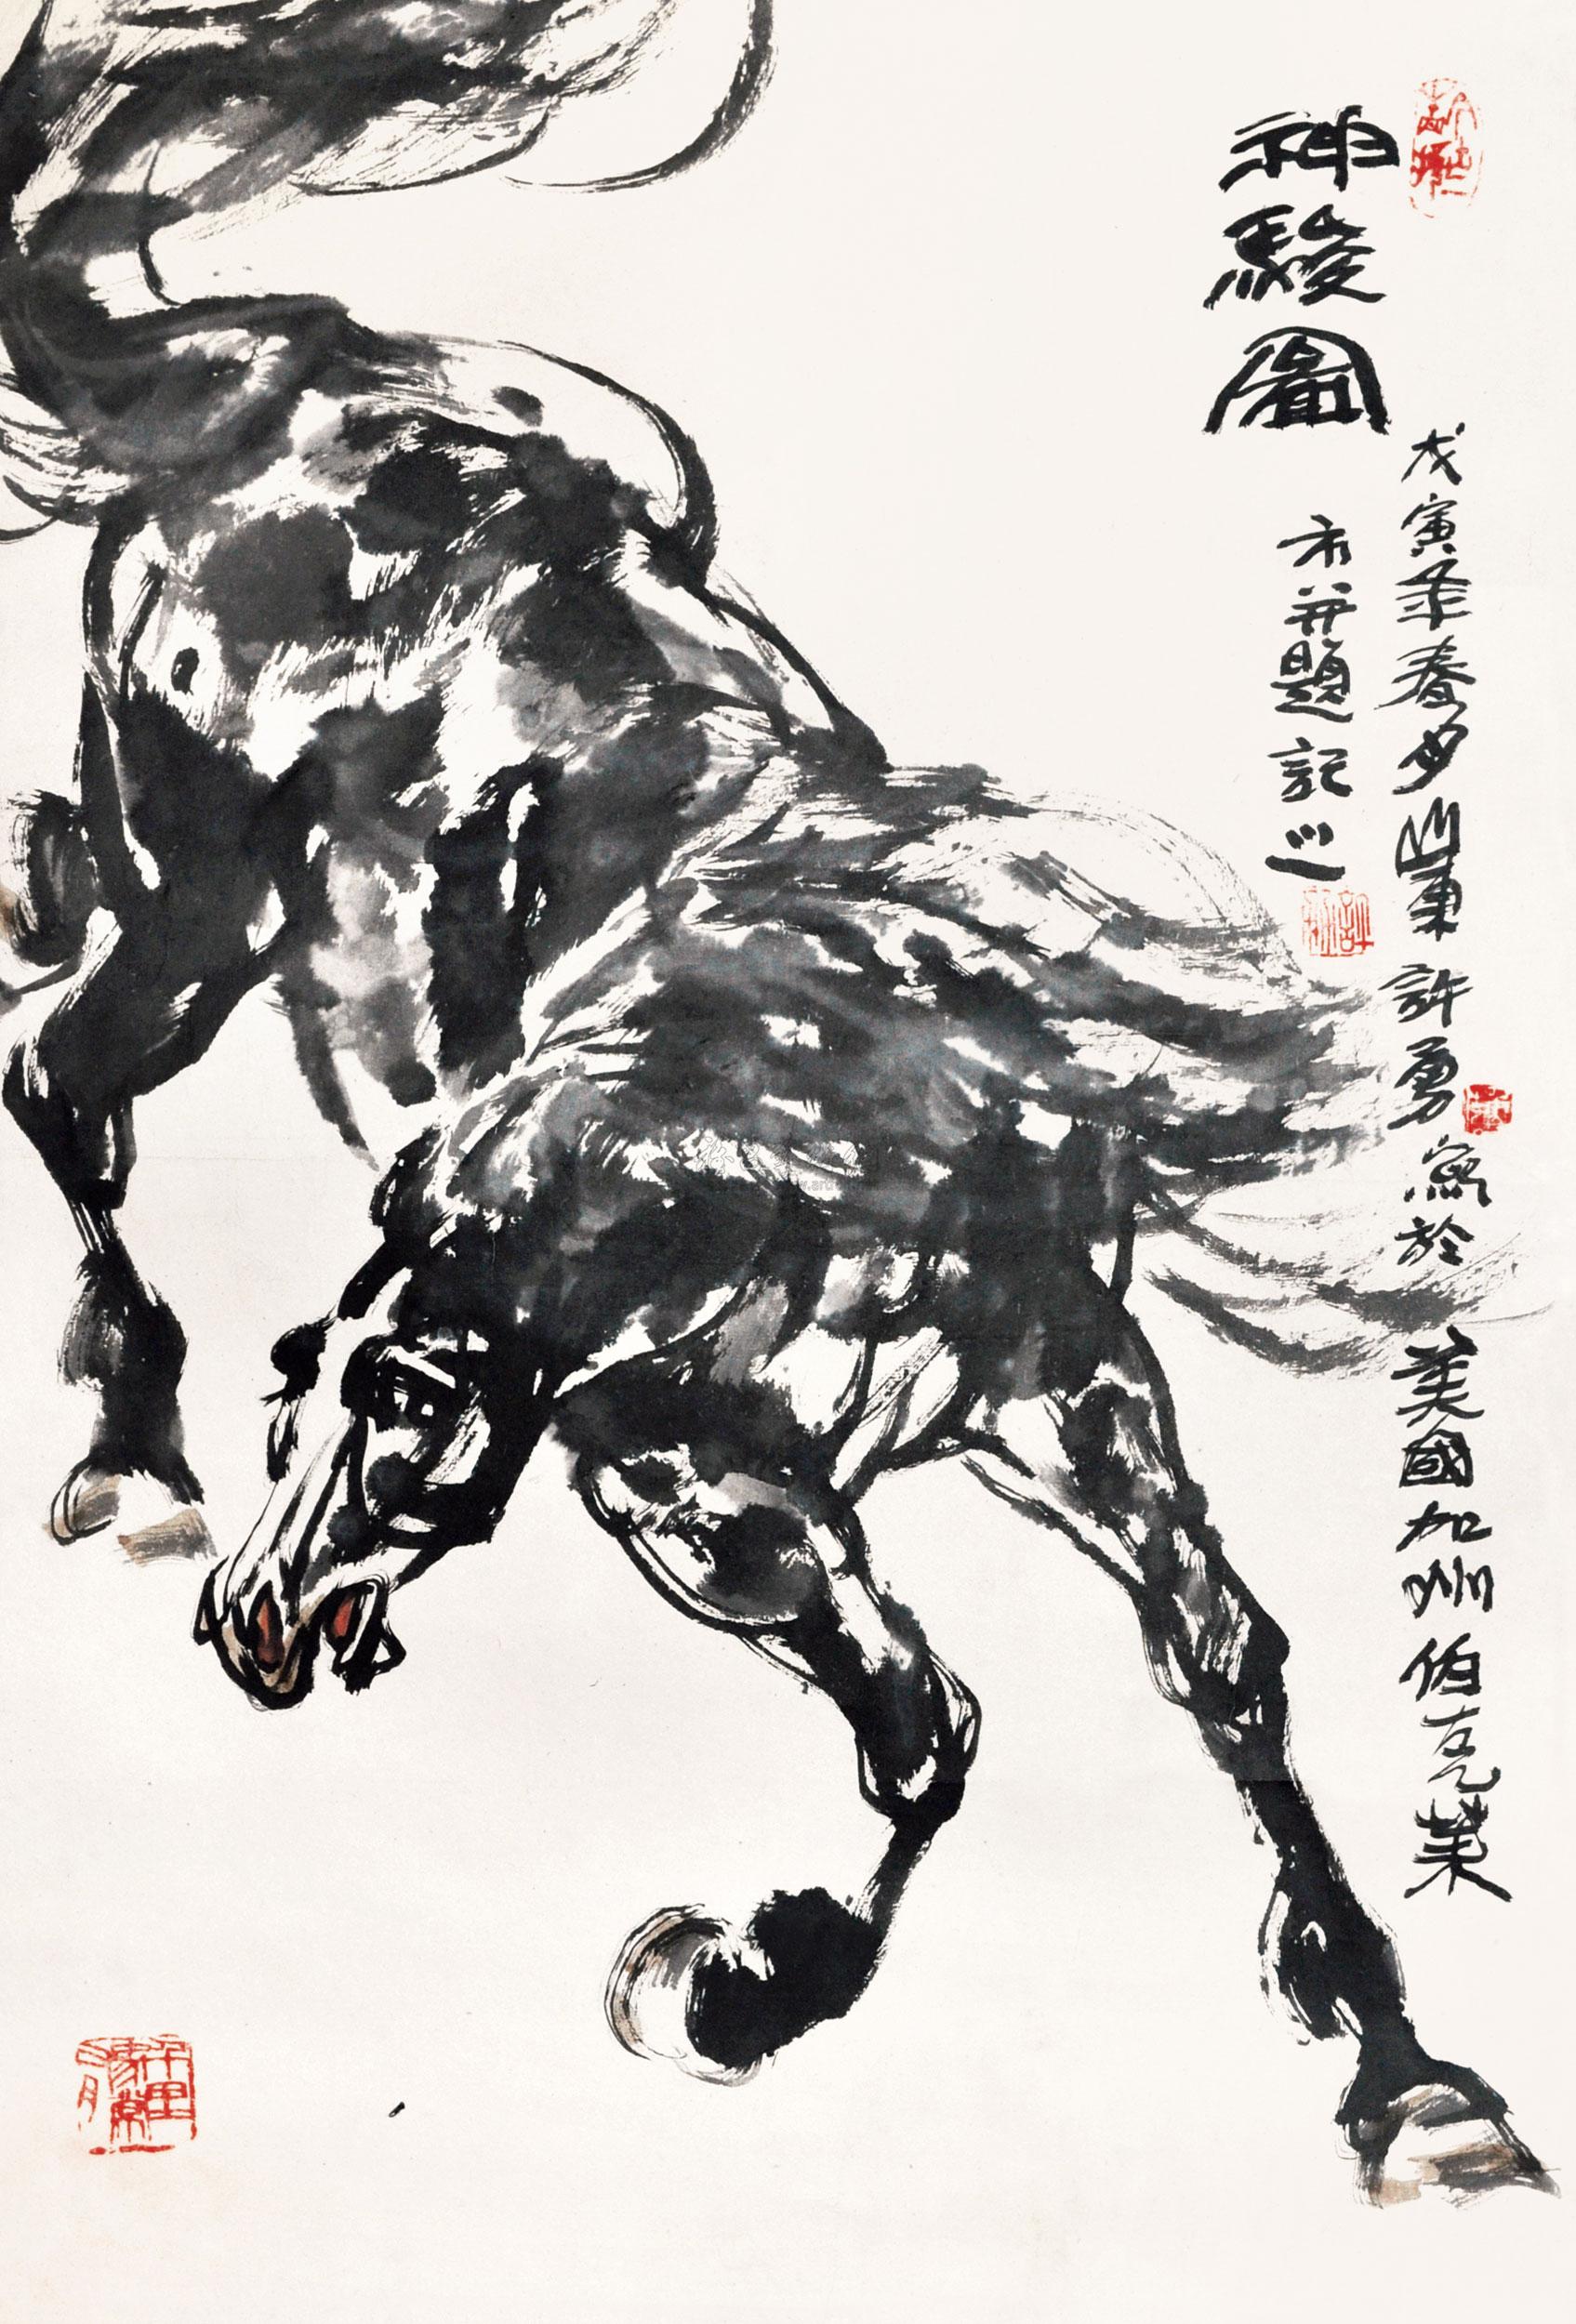 神駿圖
戊寅年春夕山東許勇寫於美國加州伯克萊
市并題記之